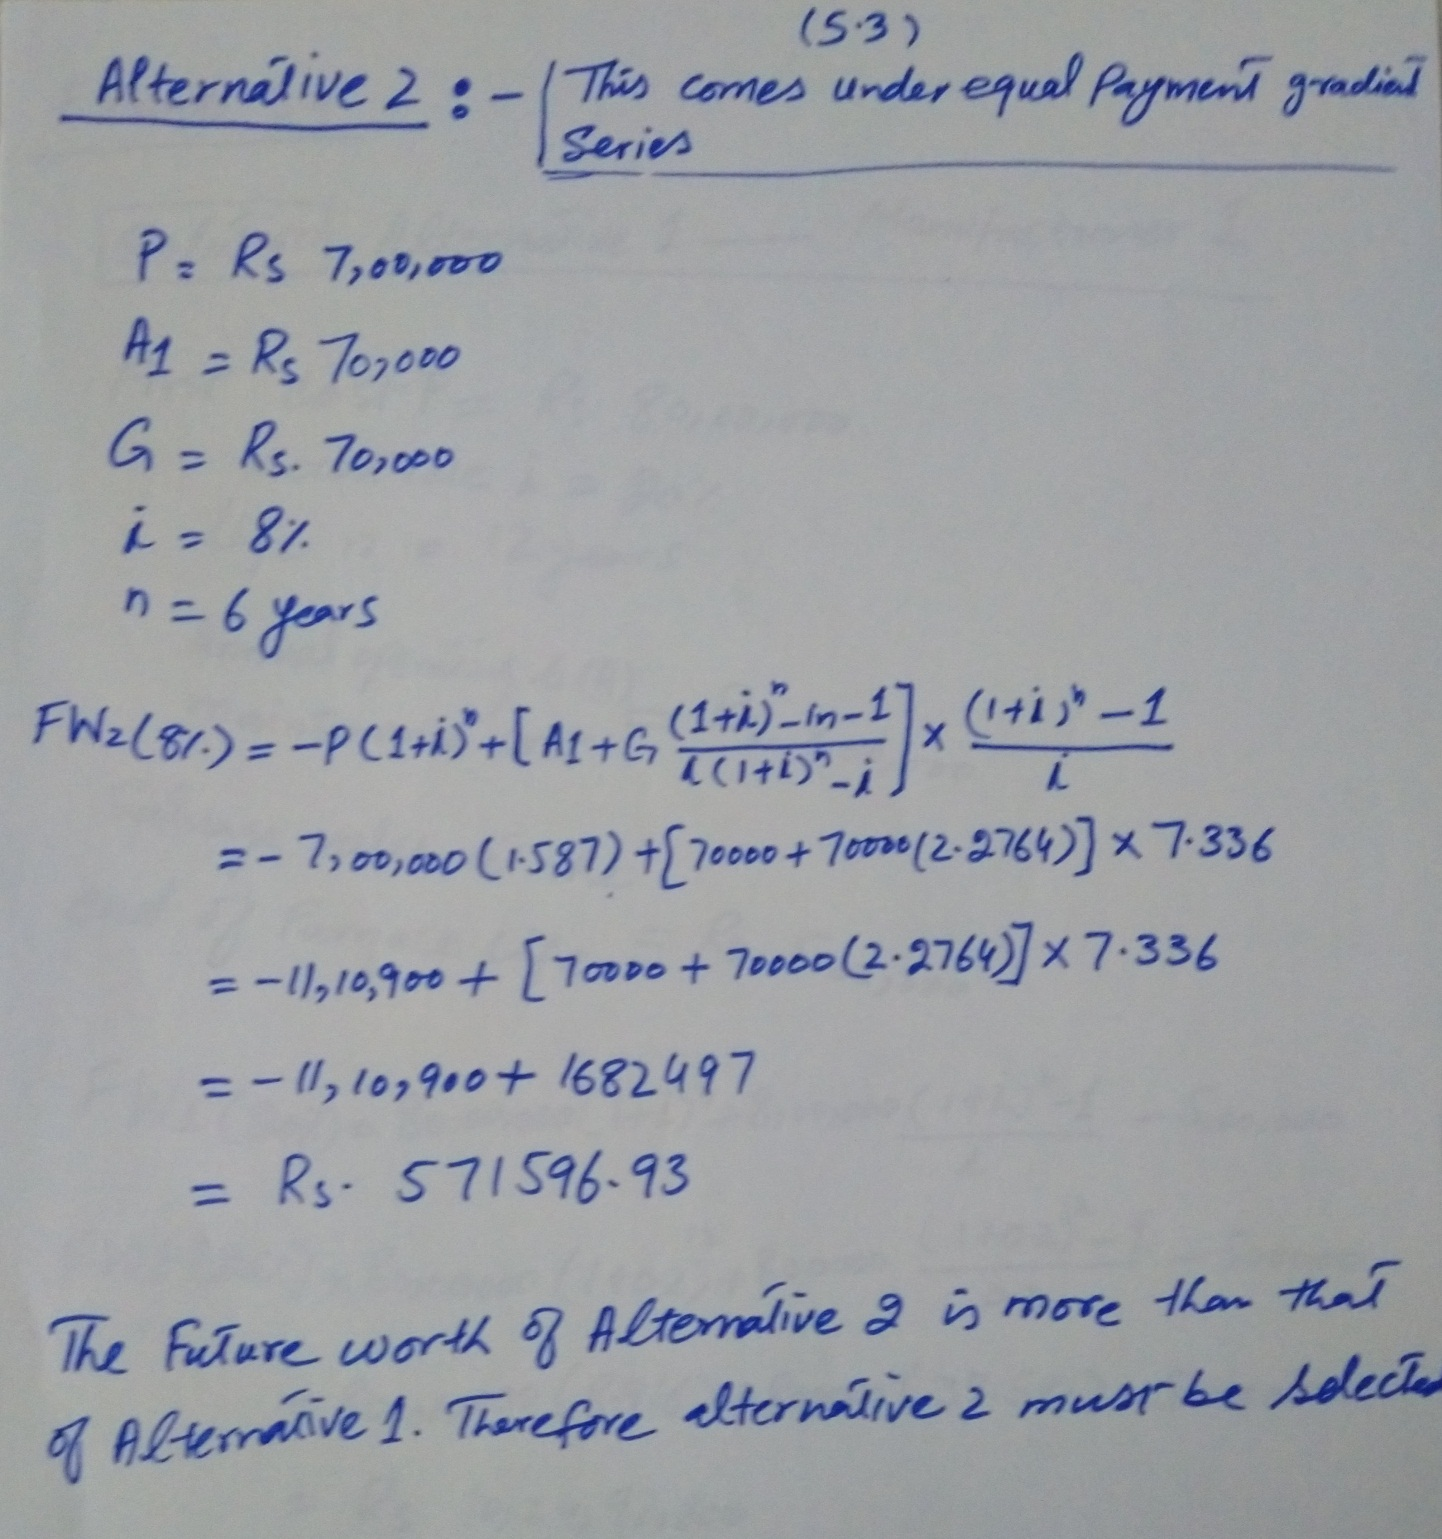 (5.3)
Alternative 2 :- This comes under equal Payment gradient
Series
P = Rs 7,00,000
A1 = Rs 70,000
G = Rs. 70,000
i = 8%
n = 6 years
FW2(8%) = -P(1+i)^n + [A1 + G ((1+i)^n - in - 1)/(i(1+i)^n - i)] x ((1+i)^n - 1)/i
= - 7,00,000 (1.587) + [70000 + 70000 (2.2764)] x 7.336
= -11,10,900 + [70000 + 70000 (2.2764)] x 7.336
= -11,10,900 + 1682497
= Rs. 571596.93
The Future worth of Alternative 2 is more than that
of Alternative 1. Therefore alternative 2 must be selected